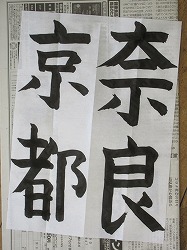 奈良
京都